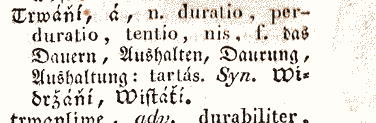 Trwáńí, á, n. duratio, per-
duratio, tentio, nis, f. das
Dauern, Aushalten, Daurung,
Aushaltung: tartás. Syn. Wi-
držáńí, Wistáťí.
trwanliwe, adv. durabiliter,